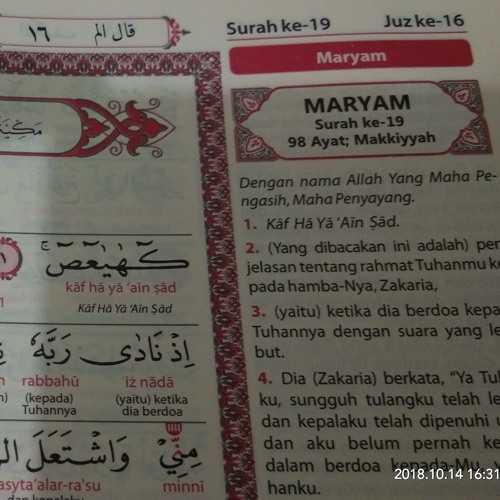 ١٦ قال الم
Surah ke-19 Juz ke-16
Maryam
MARYAM
Surah ke-19
98 Ayat; Makkiyyah
Dengan nama Allah Yang Maha Pe-
ngasih, Maha Penyayang.
1. Kāf Hā Yā ‘Aīn Ṣād.
2. (Yang dibacakan ini adalah) pen
jelasan tentang rahmat Tuhanmu ke
pada hamba-Nya, Zakaria,
3. (yaitu) ketika dia berdoa kepa
Tuhannya dengan suara yang le
but.
4. Dia (Zakaria) berkata, “Ya Tu
ku, sungguh tulangku telah le
dan kepalaku telah dipenuhi
dan aku belum pernah ke
dalam berdoa kepada-Mu,
hanku.
كۤهٰيٰعۤصۤ
kāf hā yā ‘aīn ṣād
Kāf Hā Yā ‘Aīn Ṣād
اِذْ نَادٰى رَبَّهٗ
rabbahū iż nādā
(kepada) (yaitu) ketika
Tuhannya dia berdoa
مِنِّيْ وَاشْتَعَلَ
asyta‘alar-ra'su minnī
dan kepalaku
2018.10.14 16:31